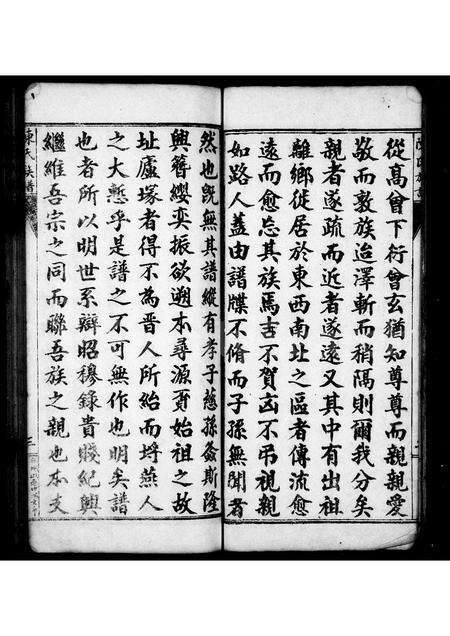 從高曾下衍曾玄猶知尊尊而親親愛
敬而敦族迨澤斬而稍隔則爾我分矣
親者遂疏而近者遂遠又其中有出祖
離鄉徙居於東西南址之區者傳流愈
遠而愈忘其族焉吉不賀凶不弔視親
如路人蓋由譜牒不脩而子孫無聞者
然也旣無其譜縱有孝子慈孫螽斯隆
興簪纓奕振欲遡本尋源覓始祖之故
址廬塚者得不為晋人所紿而埒燕人
之大慙乎是譜之不可無作也明矣譜
也者所以明世系辯昭穆錄貴賤紀興
繼維吾宗之同而聯吾族之親也本支
陳氏族譜
三